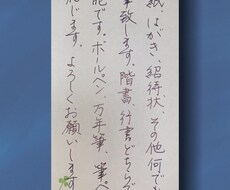 紙、はがき、招待状、その他何でも
筆致します。楷書、行書どちらも
記です。ボールペン、万年筆、筆ペ
応じます。よろしくお願いします